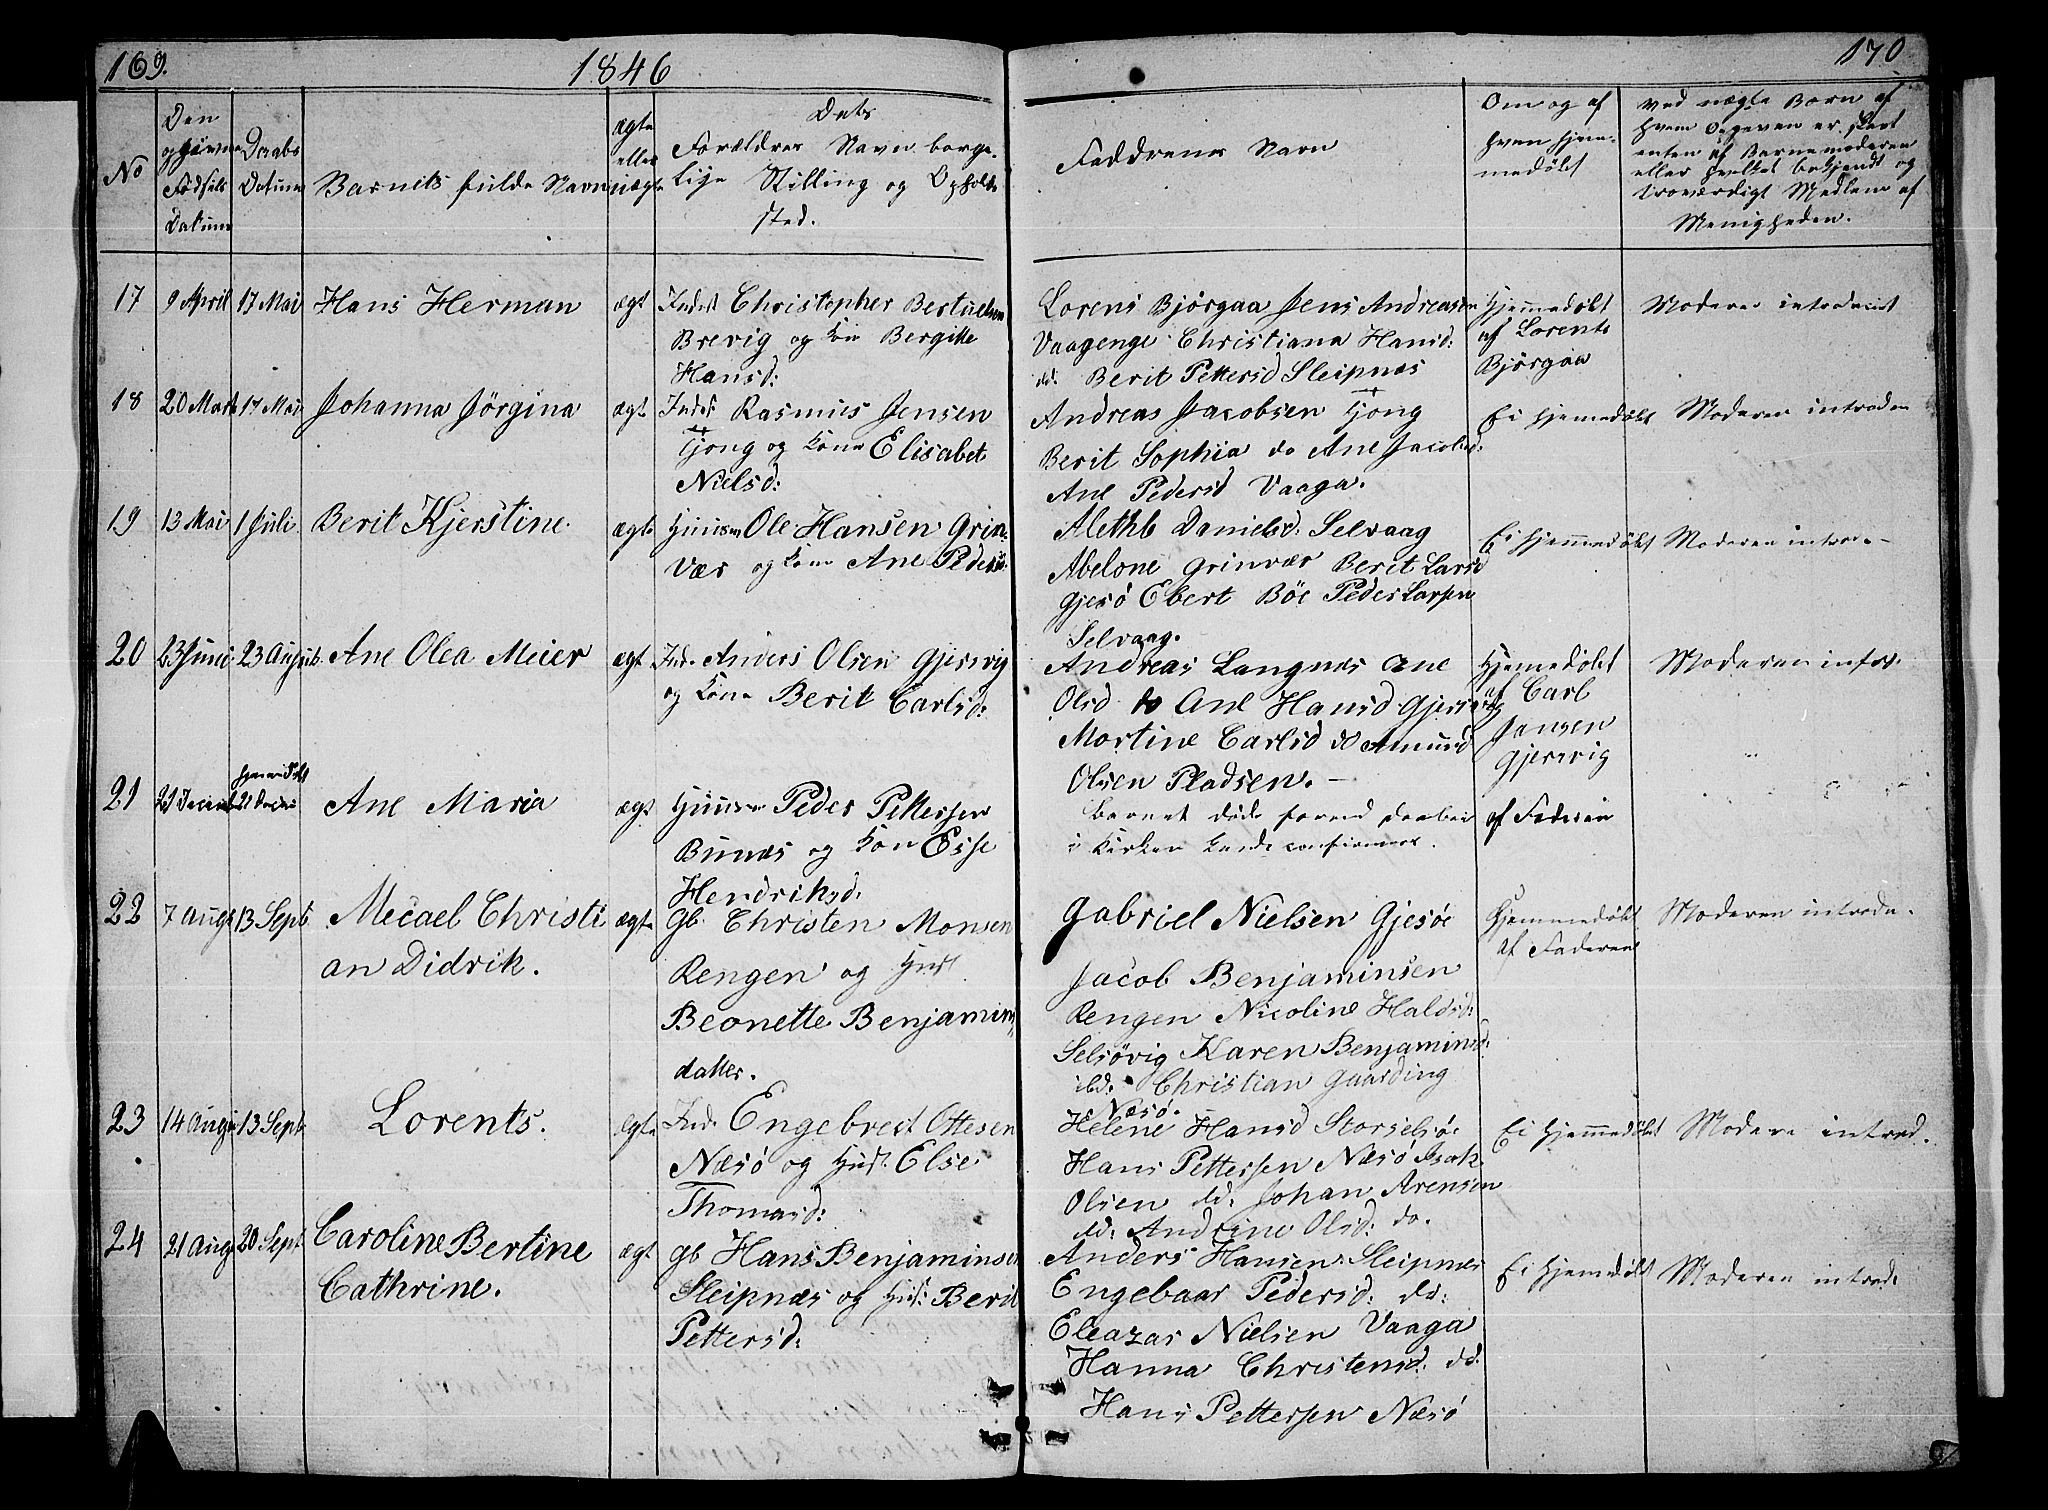 169. 1846 170
No
Den
Fødsels
Datum
Daabs
Datum
Barnets fulde Navn
ægte
eller
uægte
Dets
Forældres Navn borger-
lige Stilling og Opholds
sted.
Faddrenes Navn
Om og af
hvem hjem-
medøbt
ved uægte Børn af
hvem Opgaven er skeet
enten af Barnemoderen
eller hvilket bekjendt og
troværdigt Medlem af
Menigheden.
17 9 April 17 Mai Hans Herman ægt Inderst Christopher Bertuelsen
Brevig og Kone Bergitte
Hansd:
Lorens Bjørgaa Jens Andreasen
Vaagenge Christiana Hansd:
dd: Berit Pettersd Sleipnæs
Hjemmedøbt
af Lorents
Bjørgaa
Moderen introduceret
18 20 Marts 17 Mai Johanna Jørgina ægt Inds: Rasmus Jensen
Tjong og Kone Elisabet
Nielsd:
Andreas Jacobsen Tjong
Berit Sophia do Ane Jacobsd:
Ane Pedersd Vaaga.
Ei hjemmedøbt Moderen introdu
19 13 Mai 1 Juli Berit Kjerstine. ægte Huusm Ole Hansen Grin-
vær og Kone Ane Pedersd:
Alethe Danielsd: Selvaag
Abelone Grinvær Berit Larsd
Gjesø Ebert Böe Peder Larsen
Selvaag.
Ei hjemmedøbt Moderen introd. –
20 23 Juni 23 August. Ane Olea Meier ægt Ind. Anders Olsen Gjersvig
og Kone Berit Carlsd:
Andreas Langnæs Ane
Olsd do Ane Hansd Gjersvig
Martine Carlsd do Amund
Olsen Pladsen. –
Hjemmedøbt
af Carl
Jensen
Gjersvig
Moderen introd.
21 21 Decemb hjemmedøbt
21 Decem Ane Maria ægt Huusm Peder Pettersen
Bunæs og Kone Else
Hendriksd:
Barnet døde forend Daaben
i Kirken kunde confirmeres.
af Faderen
22 7 Augs 13 Sept. Mecael Christi
an Didrik.
ægte Gb. Christen Monsen
Rengen og Hust
Beonette Benjamins-
datter.
Gabriel Nielsen Gjesöe
Jacob Benjaminsen
Rengen Nicoline Haldsd:
Selsøvig Karen Benjaminsd:
ibd: Christian Gaarding
Næsø.
Hjemmedøbt
af Faderen
Moderen introdu.
23 14 Augu 13 Sept. Lorents. ægte Ind. Engebret Ottesen
Næsö og Hust. Else
Thomasd:
Helene Hansd Storselsöe
Hans Pettersen Næsö Isach
Olsen dd: Johan Arensen
dd: Andrine Olsd: do.
Ei hjemmedøbt Modere introd.
24 21 Aug 20 Sept. Caroline Bertine
Cathrine.
ægt Gb Hans Benjaminsen
Sleipnæs og Hust: Berit
Pettersd:
Anders Hansen Sleipnæs
Engebaar Pedersd: dd:
Eleazar Nielsen Vaaga
Hanna Christensd: dd:
Hans Pettersen Næsö
Ei hjemmedøbt Moderen introd: